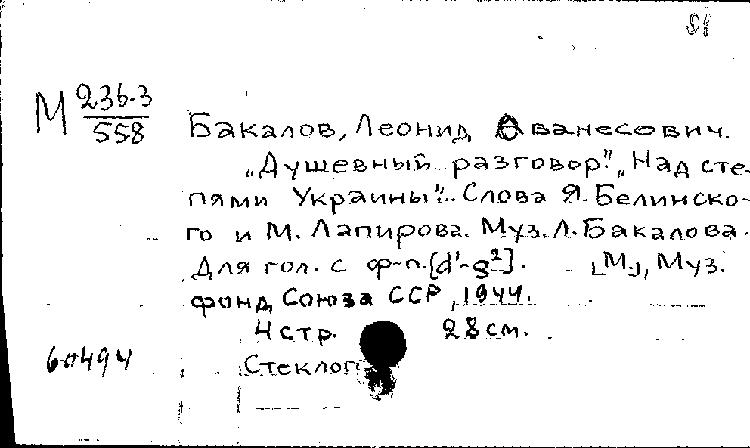 81
М 236-3
558
Бакалов, Леонид Ованесович.
„Душевный разговор". „Над сте-
пями Украины". Слова Я. Белинско-
го и М. Лапирова. Муз. Л. Бакалова.
Для гол. с ф-п. [d¹-g²]. [М.], Муз.
фонд Союза ССР, 1944.
4 стр. 28 см.
60494
Стеклог